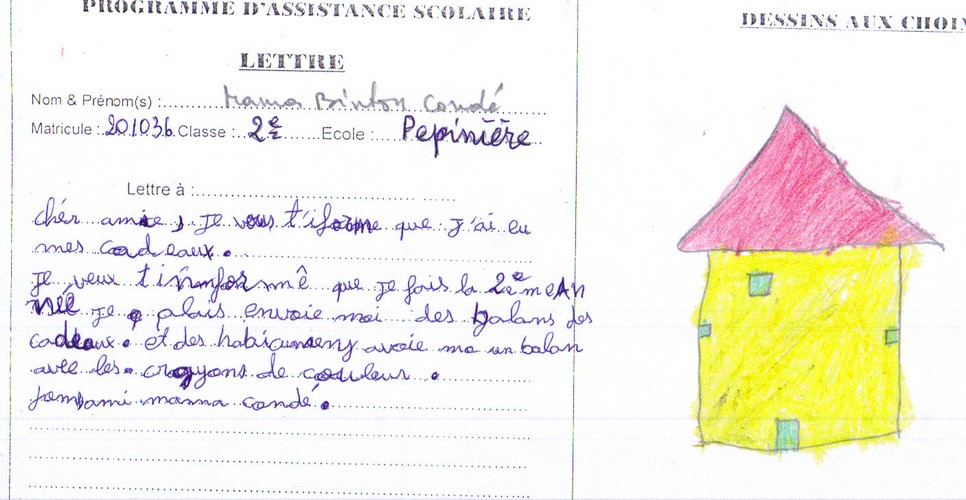 PROGRAMME D'ASSISTANCE SCOLAIRE
DESSINS AUX CHOIX
LETTRE
Nom & Prénom(s) : Mama Binton Condé
Matricule : 201036 Classe : 2e Ecole : Pepinière
Lettre à :
chér amie, Je vous t'iforme que j'ai eu
mes cadeaux.
Je veux t'inmformê que je fais la 2e me An
née je plais envoie moi des balans des
cadeaux. et des avoie ma un balan
avec les crayons de couleur.
manna condé.